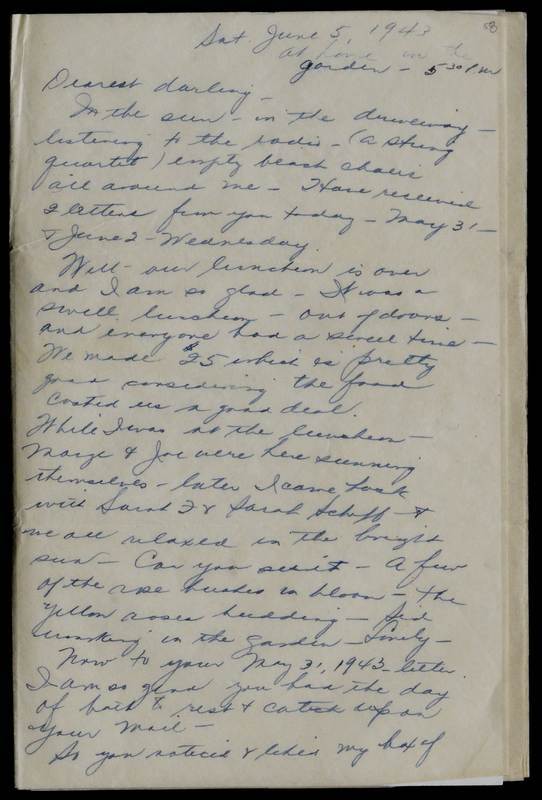 8
Sat. June 5, 1943
at home in the
garden - 5 30 P.M
Dearest darling -
In the sun - in the driveway -
listening to the radio - (a string
quartet) empty beach chairs
all around me - Have received
2 letters from you today - May 31 -
& June 2 - Wednesday.
Well - our luncheon is over
and I am so glad - It was a
swell luncheon - out of doors -
and everyone had a swell time -
We made $25 which is pretty
good considering the food
costed us a good deal.
While I was at the luncheon -
Marge & Joe were here sunning
themselves - later I came back
with Sarah F & Sarah Schiff - &
we all relaxed in the bright
sun - Can you see it - A few
of the rose bushes in bloom - the
yellow roses budding - Sid
working in the garden - Lovely -
Now to your May 31, 1943 - letter.
I am so glad you had the day
of to rest & catch up on
your mail -
So you noticed & liked my box of